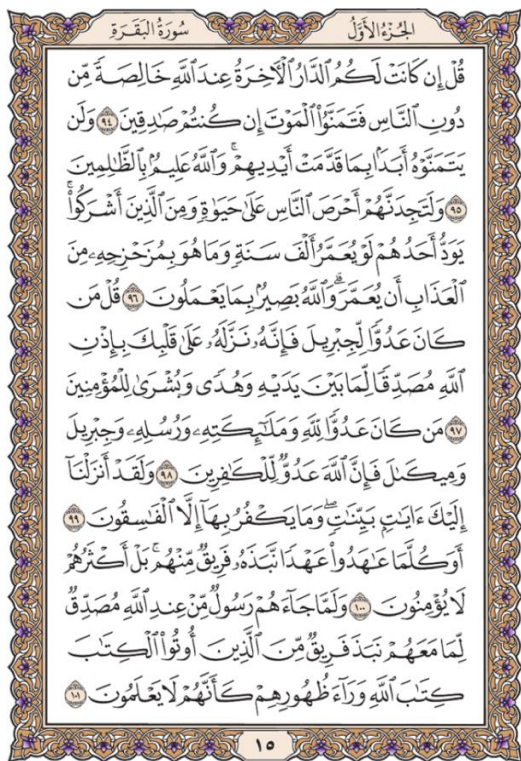 الجُزْءُ الأَوَّلُ سُورَةُ البَقَرَةِ
قُلْ إِن كَانَتْ لَكُمُ ٱلدَّارُ ٱلْأَخِرَةُ عِندَ ٱللَّهِ خَالِصَةً مِّن
دُونِ ٱلنَّاسِ فَتَمَنَّوُاْ ٱلْمَوْتَ إِن كُنتُمْ صَٰدِقِينَ ٩٤ وَلَن
يَتَمَنَّوْهُ أَبَدَۢا بِمَا قَدَّمَتْ أَيْدِيهِمْۚ وَٱللَّهُ عَلِيمُۢ بِٱلظَّٰلِمِينَ
٩٥ وَلَتَجِدَنَّهُمْ أَحْرَصَ ٱلنَّاسِ عَلَىٰ حَيَوٰةٍ وَمِنَ ٱلَّذِينَ أَشْرَكُواْۚ
يَوَدُّ أَحَدُهُمْ لَوْ يُعَمَّرُ أَلْفَ سَنَةٍ وَمَا هُوَ بِمُزَحْزِحِهِۦ مِنَ
ٱلْعَذَابِ أَن يُعَمَّرَۗ وَٱللَّهُ بَصِيرُۢ بِمَا يَعْمَلُونَ ٩٦ قُلْ مَن
كَانَ عَدُوًّا لِّجِبْرِيلَ فَإِنَّهُۥ نَزَّلَهُۥ عَلَىٰ قَلْبِكَ بِإِذْنِ
ٱللَّهِ مُصَدِّقًا لِّمَا بَيْنَ يَدَيْهِ وَهُدًى وَبُشْرَىٰ لِلْمُؤْمِنِينَ
٩٧ مَن كَانَ عَدُوًّا لِّلَّهِ وَمَلَٰٓئِكَتِهِۦ وَرُسُلِهِۦ وَجِبْرِيلَ
وَمِيكَىٰلَ فَإِنَّ ٱللَّهَ عَدُوٌّ لِّلْكَٰفِرِينَ ٩٨ وَلَقَدْ أَنزَلْنَآ
إِلَيْكَ ءَايَٰتٍۭ بَيِّنَٰتٍۖ وَمَا يَكْفُرُ بِهَآ إِلَّا ٱلْفَٰسِقُونَ ٩٩
أَوَكُلَّمَا عَٰهَدُواْ عَهْدًا نَّبَذَهُۥ فَرِيقٌ مِّنْهُمۚ بَلْ أَكْثَرُهُمْ
لَا يُؤْمِنُونَ ١٠٠ وَلَمَّا جَآءَهُمْ رَسُولٌ مِّنْ عِندِ ٱللَّهِ مُصَدِّقٌ
لِّمَا مَعَهُمْ نَبَذَ فَرِيقٌ مِّنَ ٱلَّذِينَ أُوتُواْ ٱلْكِتَٰبَ
كِتَٰبَ ٱللَّهِ وَرَآءَ ظُهُورِهِمْ كَأَنَّهُمْ لَا يَعْلَمُونَ ١٠١
١٥